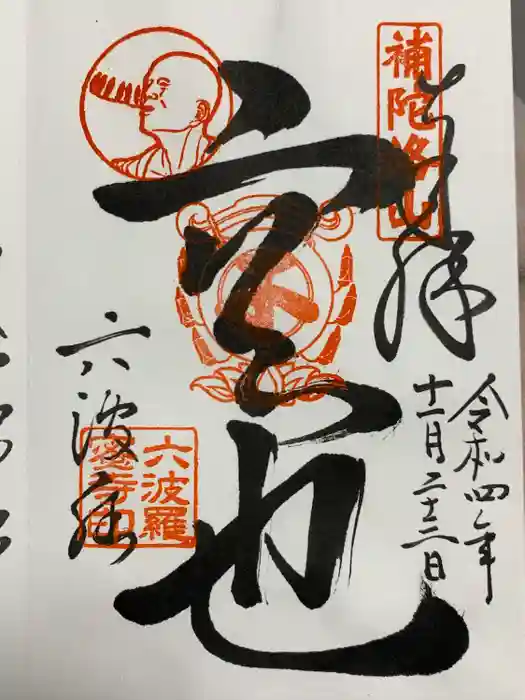 補陀洛山
奉拝
令和四年
十一月二十三日
空也
六波羅
六波羅蜜寺印